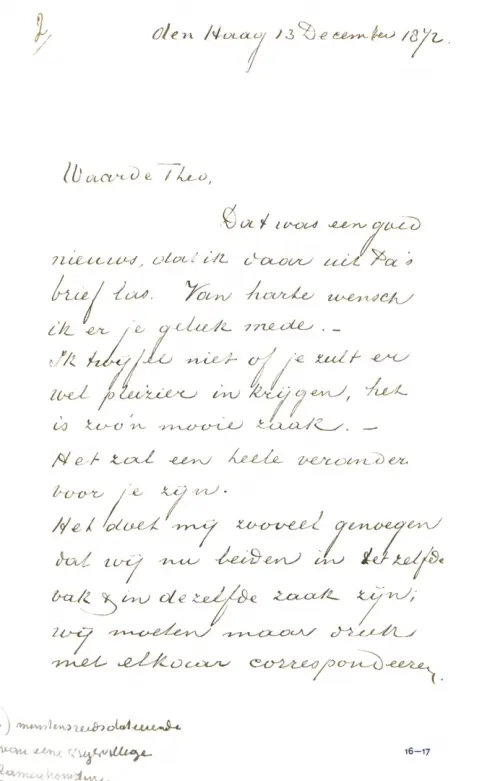 2/
den Haag 13 December 1872.
Waarde Theo,
Dat was een goed
nieuws, dat ik daar uit Pa's
brief las. Van harte wensch
ik er je geluk mede. –
Ik twijfel niet of je zult er
wel pleizier in krijgen, het
is zoo'n mooie zaak. –
Het zal een heele verander
voor je zijn.
Het doet mij zooveel genoegen
dat wij nu beiden in het zelfde
vak & in dezelfde zaak zijn;
wij moeten maar druk
met elkaar correspondeeren.
van eene
16–17